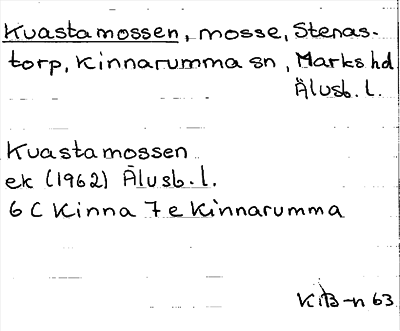 Kvastamossen, mosse, Stenas-
torp, Kinnarumma sn, Marks hd
Älvsb. l.
Kvastamossen
ek (1962) Älvsb. l.
6 C Kinna 7 e Kinnarumma
63